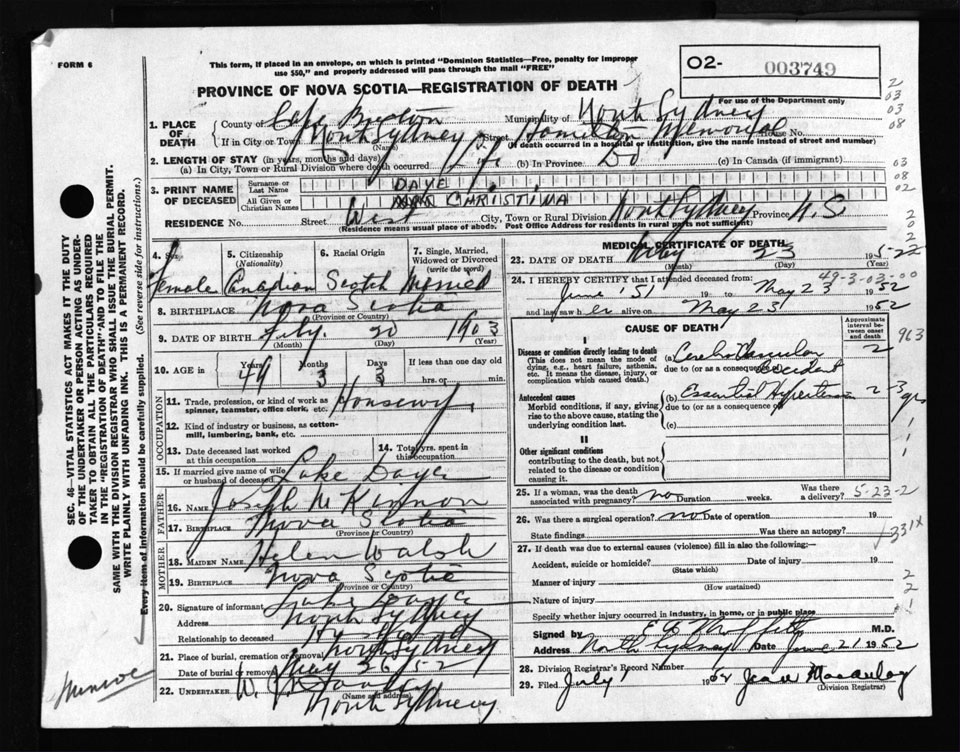 FORM 6
This form, if placed in an envelope, on which is printed "Dominion Statistics—Free, penalty for improper
use $50," and properly addressed will pass through the mail "FREE"
02- 003749
PROVINCE OF NOVA SCOTIA—REGISTRATION OF DEATH
For use of the Department only
1. PLACE OF DEATH
County of Cape Breton Municipality of North Sydney
If in City or Town North Sydney Street Hamilton Memorial House No.
(Name) (If death occurred in a hospital or institution, give the name instead of street and number)
2. LENGTH OF STAY (in years, months and days)
(a) In City, Town or Rural Division where death occurred Life (b) In Province Do (c) In Canada (if immigrant)
3. PRINT NAME OF DECEASED
Surname or Last Name DAYE
All Given or Christian Names CHRISTINA
RESIDENCE No. Street West City, Town or Rural Division North Sydney Province N.S
(Residence means usual place of abode. Post Office Address for residents in rural parts not sufficient)
4. Sex
Female
5. Citizenship
(Nationality)
Canadian
6. Racial Origin
Scotch
7. Single, Married,
Widowed or Divorced
(write the word)
Married
8. BIRTHPLACE Nova Scotia
(Province or Country)
9. DATE OF BIRTH Feby. 20 1903
(Month) (Day)
10. AGE in
Years Months Days If less than one day old
49 3 3 hrs. or min.
OCCUPATION
11. Trade, profession, or kind of work as
spinner, teamster, office clerk, etc. Housewife
12. Kind of industry or business, as cotton-
mill, lumbering, bank, etc.
13. Date deceased last worked
at this occupation
14. Total yrs. spent in
this occupation
15. If married give name of wife
or husband of deceased Luke Daye
FATHER
16. NAME Joseph McKinnon
17. BIRTHPLACE Nova Scotia
(Province or Country)
MOTHER
18. MAIDEN NAME Helen Walsh
19. BIRTHPLACE Nova Scotia
(Province or Country)
20. Signature of informant Luke Daye
Address North Sydney
Relationship to deceased Husband
21. Place of burial, cremation or removal North Sydney
Date of burial or removal May 26/52
22. UNDERTAKER W. J.
(Name and address)
North Sydney
MEDICAL CERTIFICATE OF DEATH
23. DATE OF DEATH May 23 1952
(Month) (Day)
49-3-03-00
24. I HEREBY CERTIFY that I attended deceased from:
June '51 19 to May 23 1952
and last saw her alive on May 23 1952
CAUSE OF DEATH
Approximate
interval be-
tween onset
and death
I
Disease or condition directly leading to death
(This does not mean the mode of
dying, e.g., heart failure, asthenia,
etc. It means the disease, injury, or
complication which caused death.)
(a) Cerebro Vascular
due to (or as a consequence of) accident
Antecedent causes
Morbid conditions, if any, giving
rise to the above cause, stating the
underlying condition last.
(b) Essential Hypertension 2-3 yrs
due to (or as a consequence of)
(c)
II
Other significant conditions
contributing to the death, but not
related to the disease or condition
causing it.
25. If a woman, was the death
associated with pregnancy? no Duration weeks. Was there
a delivery? 5-23-2
26. Was there a surgical operation? no Date of operation 19
State findings Was there an autopsy?
331X
27. If death was due to external causes (violence) fill in also the following:—
Accident, suicide or homicide? Date of injury 19
(State which)
Manner of injury
(How sustained)
Nature of injury
Specify whether injury occurred in industry, in home, or in public place
Signed by M.D.
Address North Sydney Date June 21 1952
28. Division Registrar's Record Number
29. Filed July 1952 Jean Macaulay
(Division Registrar)
SEC. 46—VITAL STATISTICS ACT MAKES IT THE DUTY
OF THE UNDERTAKER OR PERSON ACTING AS UNDER-
TAKER TO OBTAIN ALL THE PARTICULARS REQUIRED
IN THE "REGISTRATION OF DEATH" AND TO FILE THE
SAME WITH THE DIVISION REGISTRAR WHO SHALL ISSUE THE BURIAL PERMIT.
WRITE PLAINLY WITH UNFADING INK. THIS IS A PERMANENT RECORD.
Every item of information should be carefully supplied. (See reverse side for instructions.)
Munroe
2
03
03
08
03
08
02
963